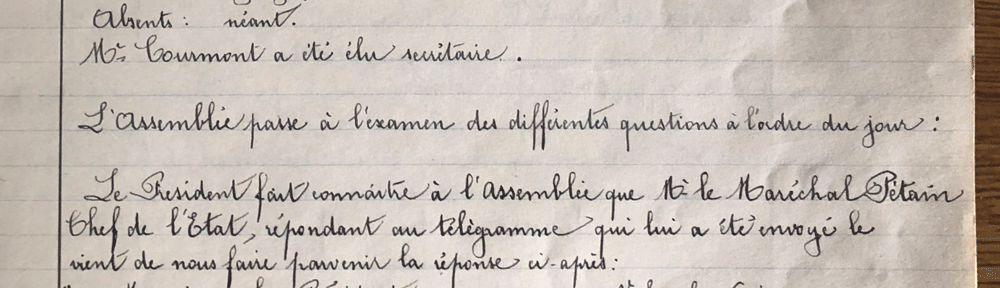 Absents : néant.
Mr Courmont a été élu secrétaire.
L'Assemblée passe à l'examen des différentes questions à l'ordre du jour :
Le Président fait connaître à l'Assemblée que Mr le Maréchal Pétain
Chef de l'Etat, répondant au télégramme qui lui a été envoyé le
vient de nous faire parvenir la réponse ci-après :